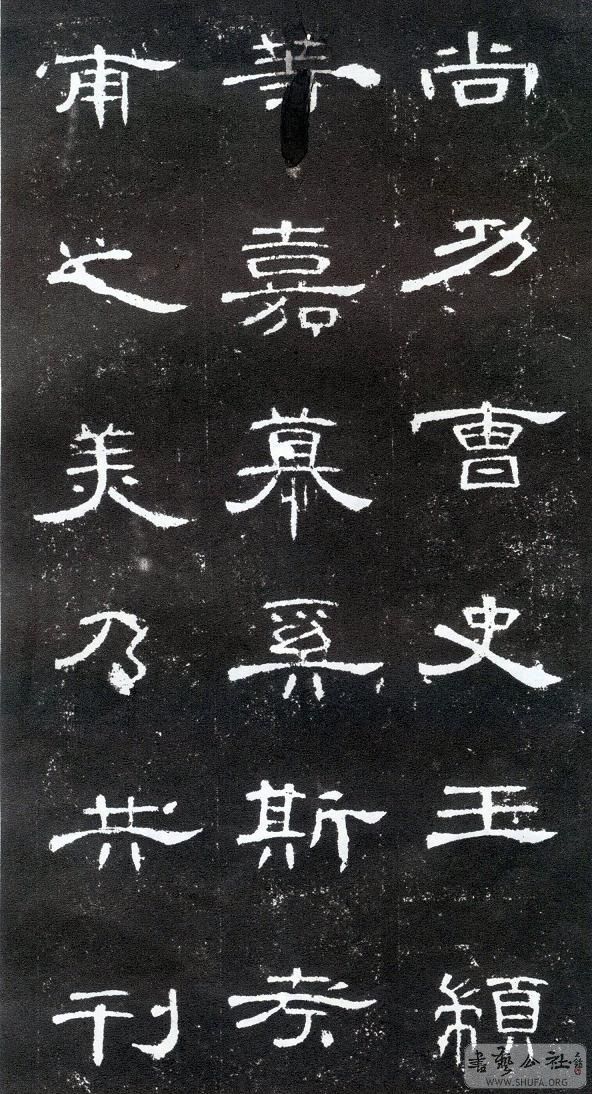 尚功曹史王顓
等嘉慕奚斯考
甫之美乃共刊
書藝公社
WWW.SHUFA.ORG